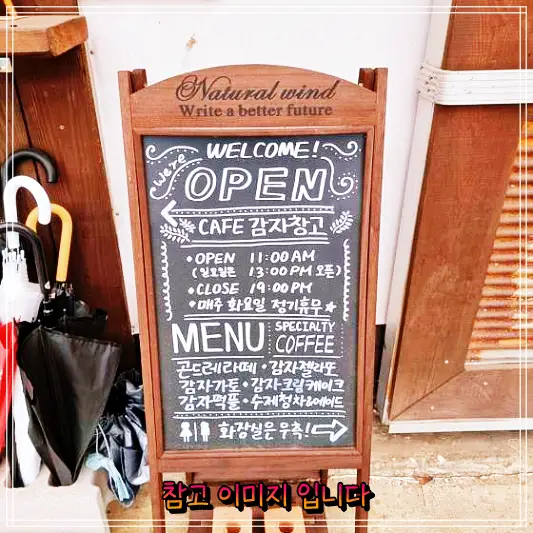 Natural wind
Write a better future
WELCOME!
we're
OPEN
CAFE 감자창고
• OPEN 11:00 AM
(일요일은 13:00 PM 오픈)
• CLOSE 19:00 PM
• 매주 화요일 정기휴무★
MENU SPECIALTY COFFEE
곤드레라떼 • 감자젤라또
감자가토 • 감자크림케이크
감자퍽풀 • 수제청차&에이드
화장실은 우측!
참고 이미지 입니다